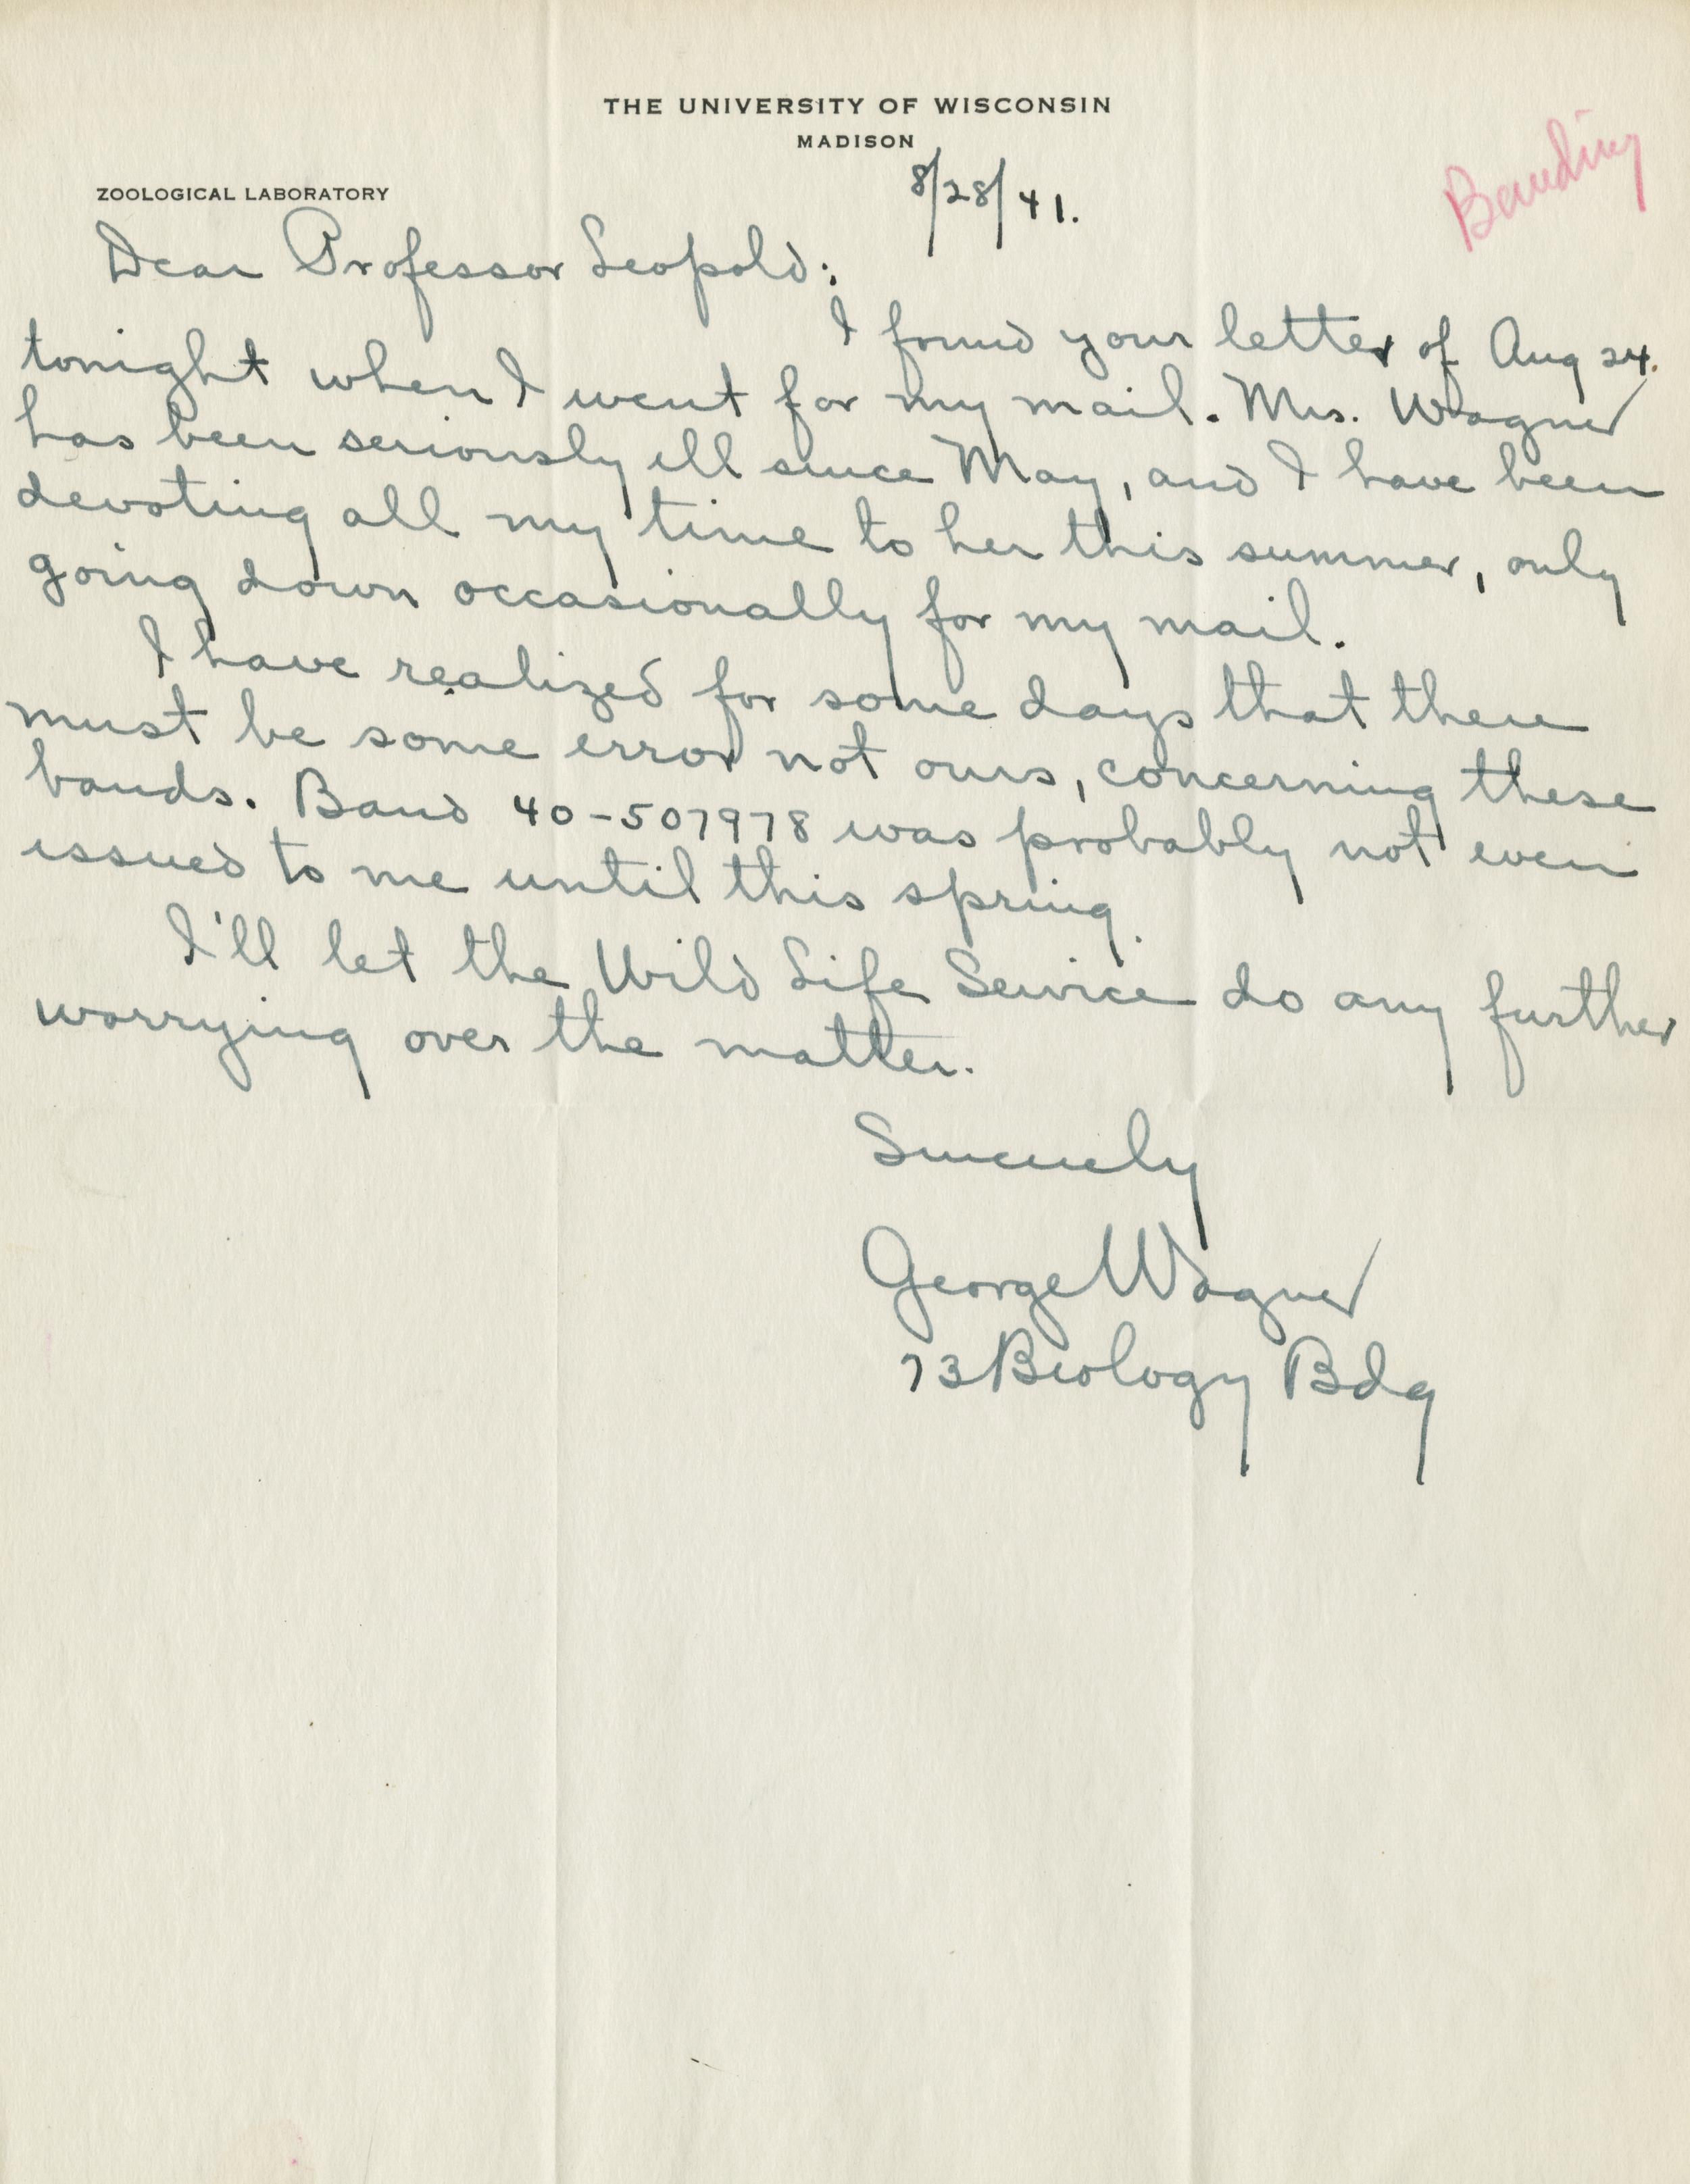 THE UNIVERSITY OF WISCONSIN
MADISON
Banding
8/28/41.
ZOOLOGICAL LABORATORY
Dear Professor Leopold:
I found your letter of Aug 24.
tonight when I went for my mail. Mrs. Wagner
has been seriously ill since May, and I have been
devoting all my time to her this summer, only
going down occasionally for my mail.
I have realized for some days that there
must be some error not ours, concerning these
bands. Band 40-507978 was probably not even
issued to me until this spring.
I'll let the Wild Life Service do any further
worrying over the matter.
Sincerely
George Wagner
73 Biology Bdg